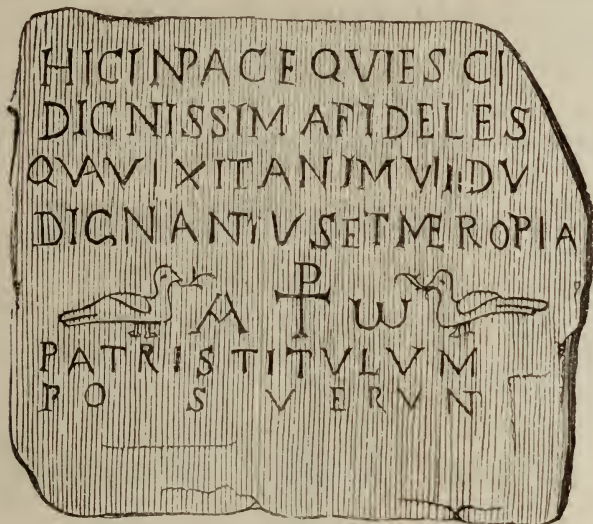 HIC IN PACE QVIESCI
DIGNISSIMA FIDELES
QVA VIXIT AN I M VII DV
DIGNANTIVS ET MEROPIA
Α ⳨ ω
PATRIS TITVLVM
POSVERVN